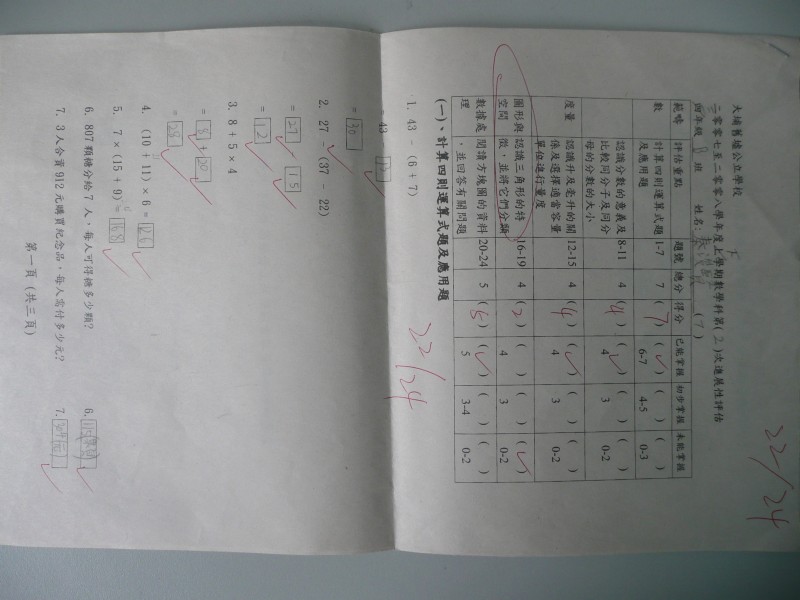 大埔舊墟公立學校
二零零七至二零零八學年度下學期數學科第(2)次進展性評估
四年級 B 班 姓名: (7)
22/24
範疇 評估重點 題號 總分 得分 已能掌握 初步掌握 未能掌握
數 計算四則運算式題及應用題 1-7 7 (7) (✓) 6-7 ( ) 4-5 ( ) 0-3
認識分數的意義及比較同分子及同分母的分數的大小 8-11 4 (4) (✓) 4 ( ) 3 ( ) 0-2
度量 認識升及毫升的關係及選擇適當容量單位進行量度 12-15 4 (4) (✓) 4 ( ) 3 ( ) 0-2
圖形與空間 認識三角形的特徵，並將它們分類 16-19 4 (2) ( ) 4 ( ) 3 (✓) 0-2
數據處理 閱讀方塊圖的資料，並回答有關問題 20-24 5 (5) (✓) 5 ( ) 3-4 ( ) 0-2
22/24
(一)、計算四則運算式題及應用題
1. 43 - (6 + 7)
= 43 - 13
= 30
2. 27 - (37 - 22)
= 27 - 15
= 12
3. 8 + 5 × 4
= 8 + 20
= 28
4. (10 + 11) × 6 = 126
5. 7 × (15 + 9) = 168
6. 807 顆糖分給 7 人，每人可得糖多少顆? 6.
7. 3 人合資 912 元購買紀念品，每人需付多少元? 7. 304元
第一頁 (共三頁)